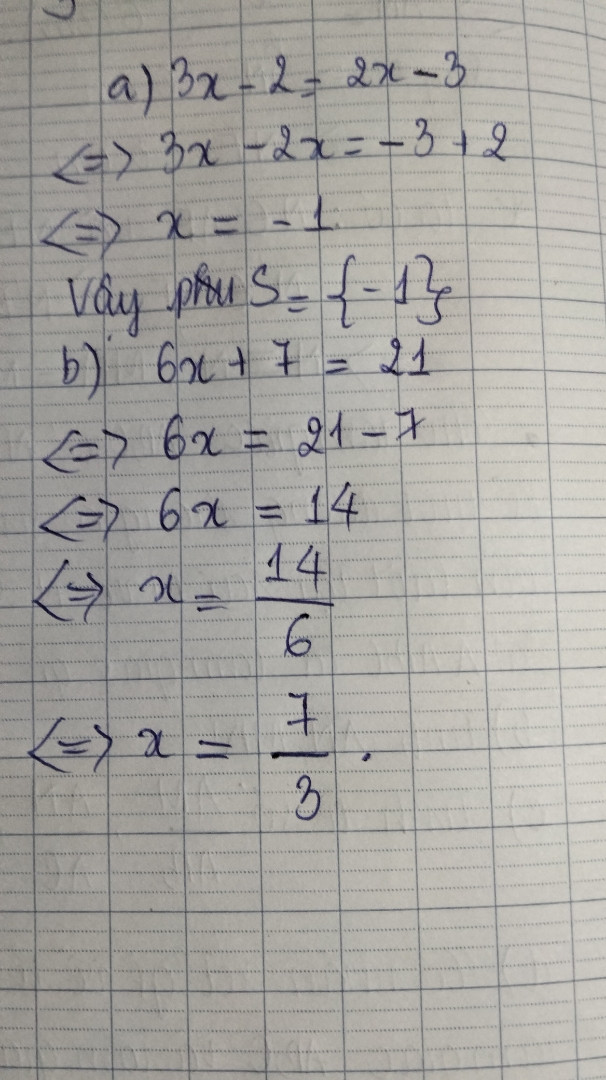 a) 3x - 2 = 2x - 3
<=> 3x - 2x = -3 + 2
<=> x = -1
Vậy S = {-1}
b) 6x + 7 = 21
<=> 6x = 21 - 7
<=> 6x = 14
<=> x = 14/6
<=> x = 7/3 .